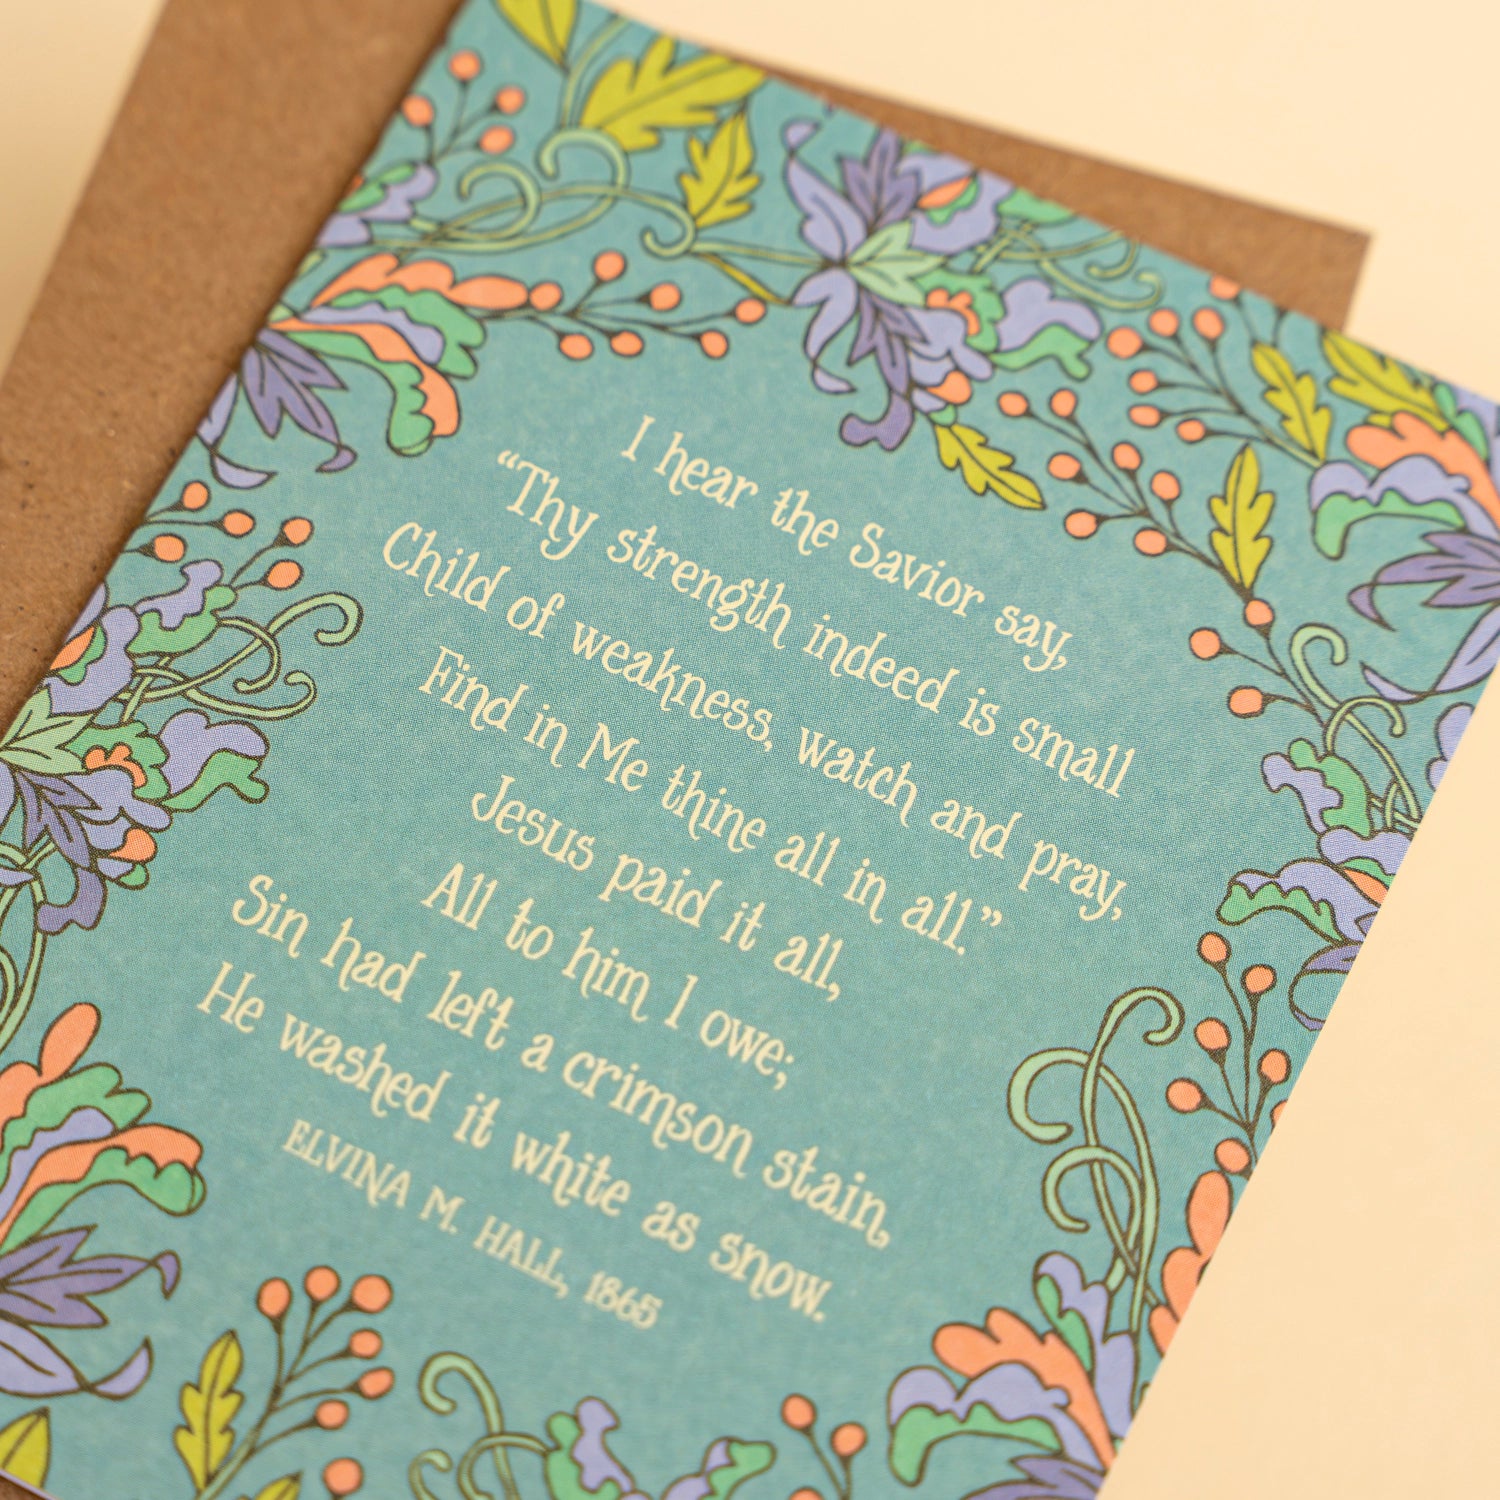 I hear the Savior say,
“Thy strength indeed is small
Child of weakness, watch and pray,
Find in Me thine all in all.”
Jesus paid it all,
All to him I owe;
Sin had left a crimson stain,
He washed it white as snow.
ELVINA M. HALL, 1865